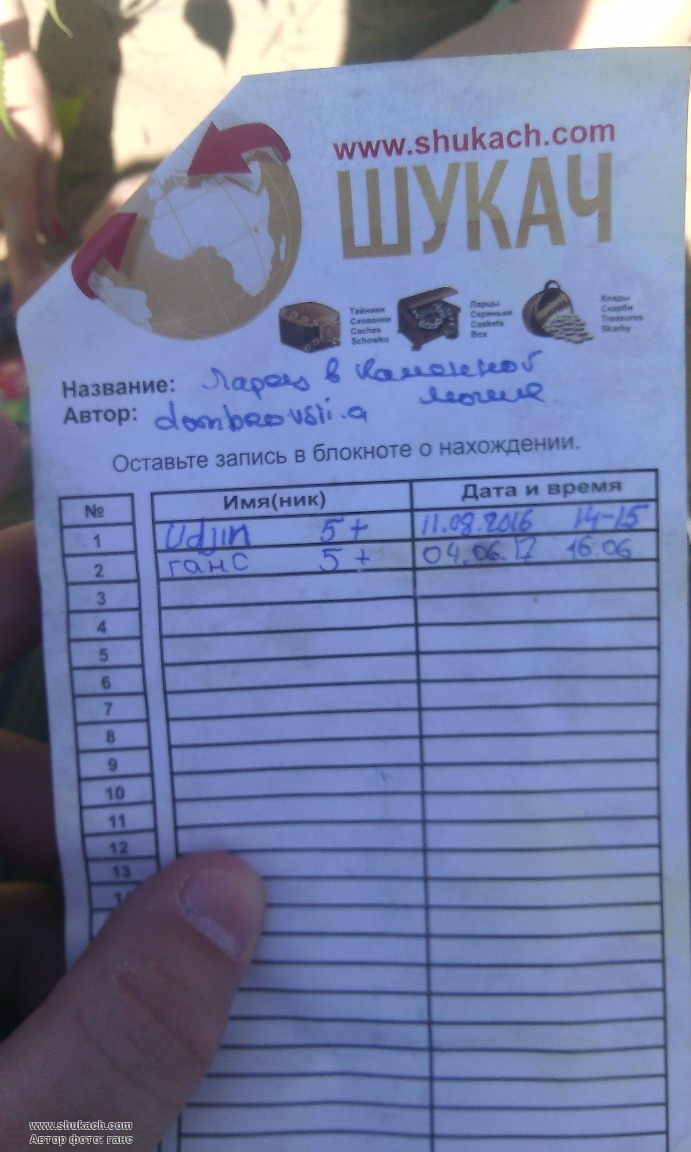 www.shukach.com
ШУКАЧ
Тайники
Схованки
Caches
Schowko
Ларцы
Скриньки
Caskets
Box
Клады
Скарби
Treasures
Skarby
Название: Ларец в Каменной
Могиле
Автор: dombrovsii.a
Оставьте запись в блокноте о нахождении.
№ Имя(ник) Дата и время
1 Udjin 5+ 11.08.2016 14-15
2 ганс 5+ 04.06.17 16:06
3
4
5
6
7
8
9
10
11
12
13
www.shukach.com
Автор фото: ганс